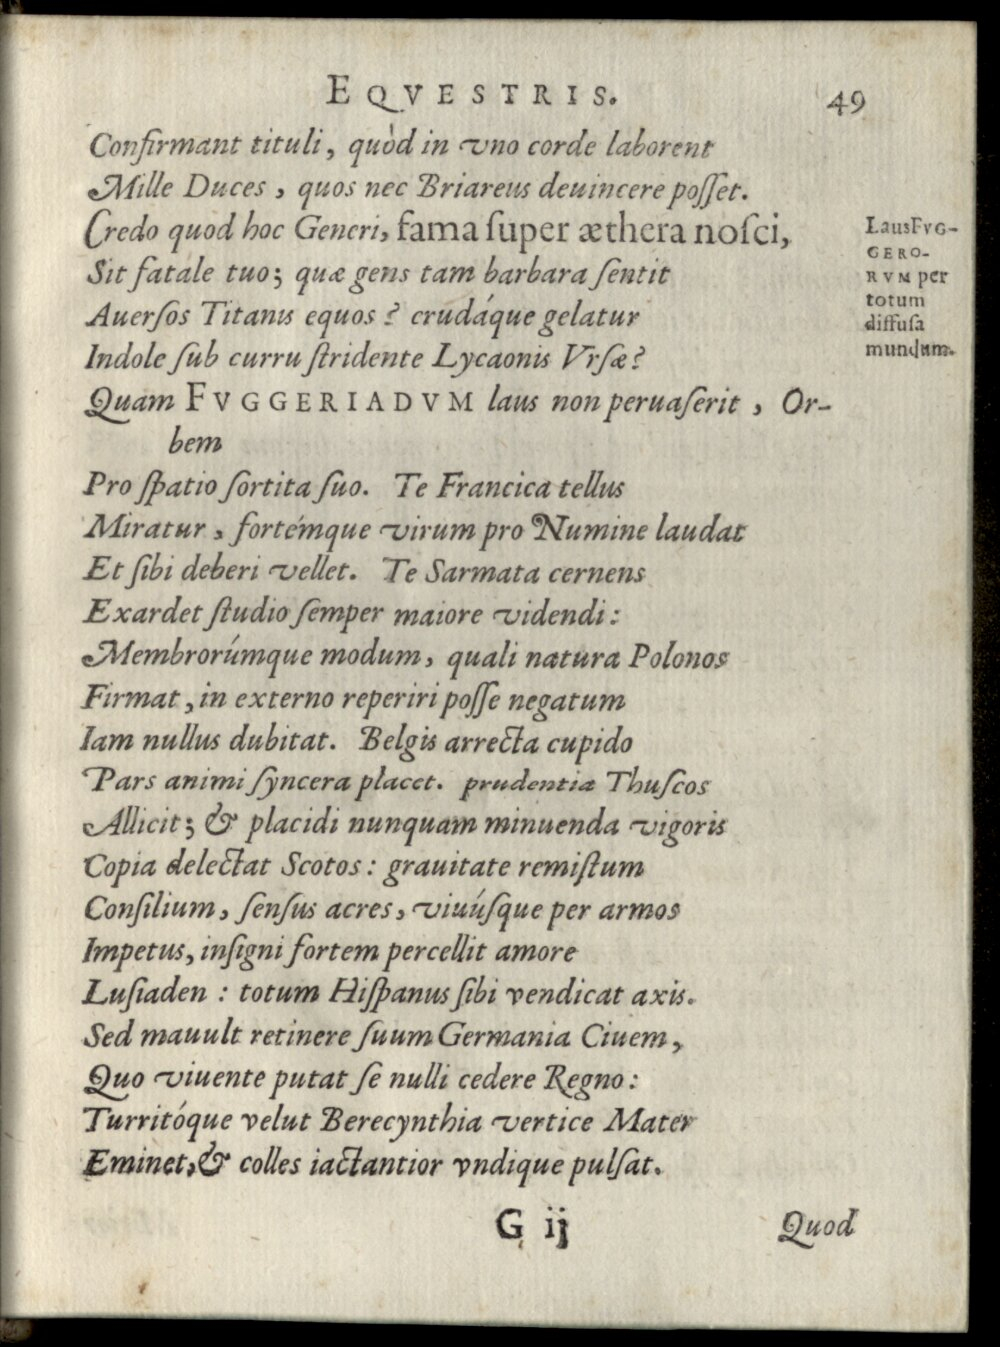 EQVESTRIS. 49
Confirmant tituli, quòd in vno corde laborent
Mille Duces, quos nec Briareus deuincere poſſet.
Credo quod hoc Generi, fama ſuper æthera noſci,
Sit fatale tuo; quæ gens tam barbara ſentit
Auerſos Titanis equos? crudáque gelatur
Indole ſub curru ſtridente Lycaonis Vrſæ?
Quam FVGGERIADVM laus non peruaſerit, Or-
bem
Pro ſpatio ſortita ſuo. Te Francica tellus
Miratur, fortémque virum pro Numine laudat
Et ſibi deberi vellet. Te Sarmata cernens
Exardet ſtudio ſemper maiore videndi:
Membrorúmque modum, quali natura Polonos
Firmat, in externo reperiri poſſe negatum
Iam nullus dubitat. Belgis arrecta cupido
Pars animi ſyncera placet. prudentia Thuſcos
Allicit; & placidi nunquam minuenda vigoris
Copia delectat Scotos: grauitate remiſtum
Conſilium, ſenſus acres, viuúſque per armos
Impetus, inſigni fortem percellit amore
Luſiaden: totum Hiſpanus ſibi vendicat axis.
Sed mauult retinere ſuum Germania Ciuem,
Quo viuente putat ſe nulli cedere Regno:
Turritóque velut Berecynthia vertice Mater
Eminet, & colles iactantior vndique pulſat.
G ij Quod
Laus FVG-
GERO-
RVM per
totum
diffuſa
mundum.